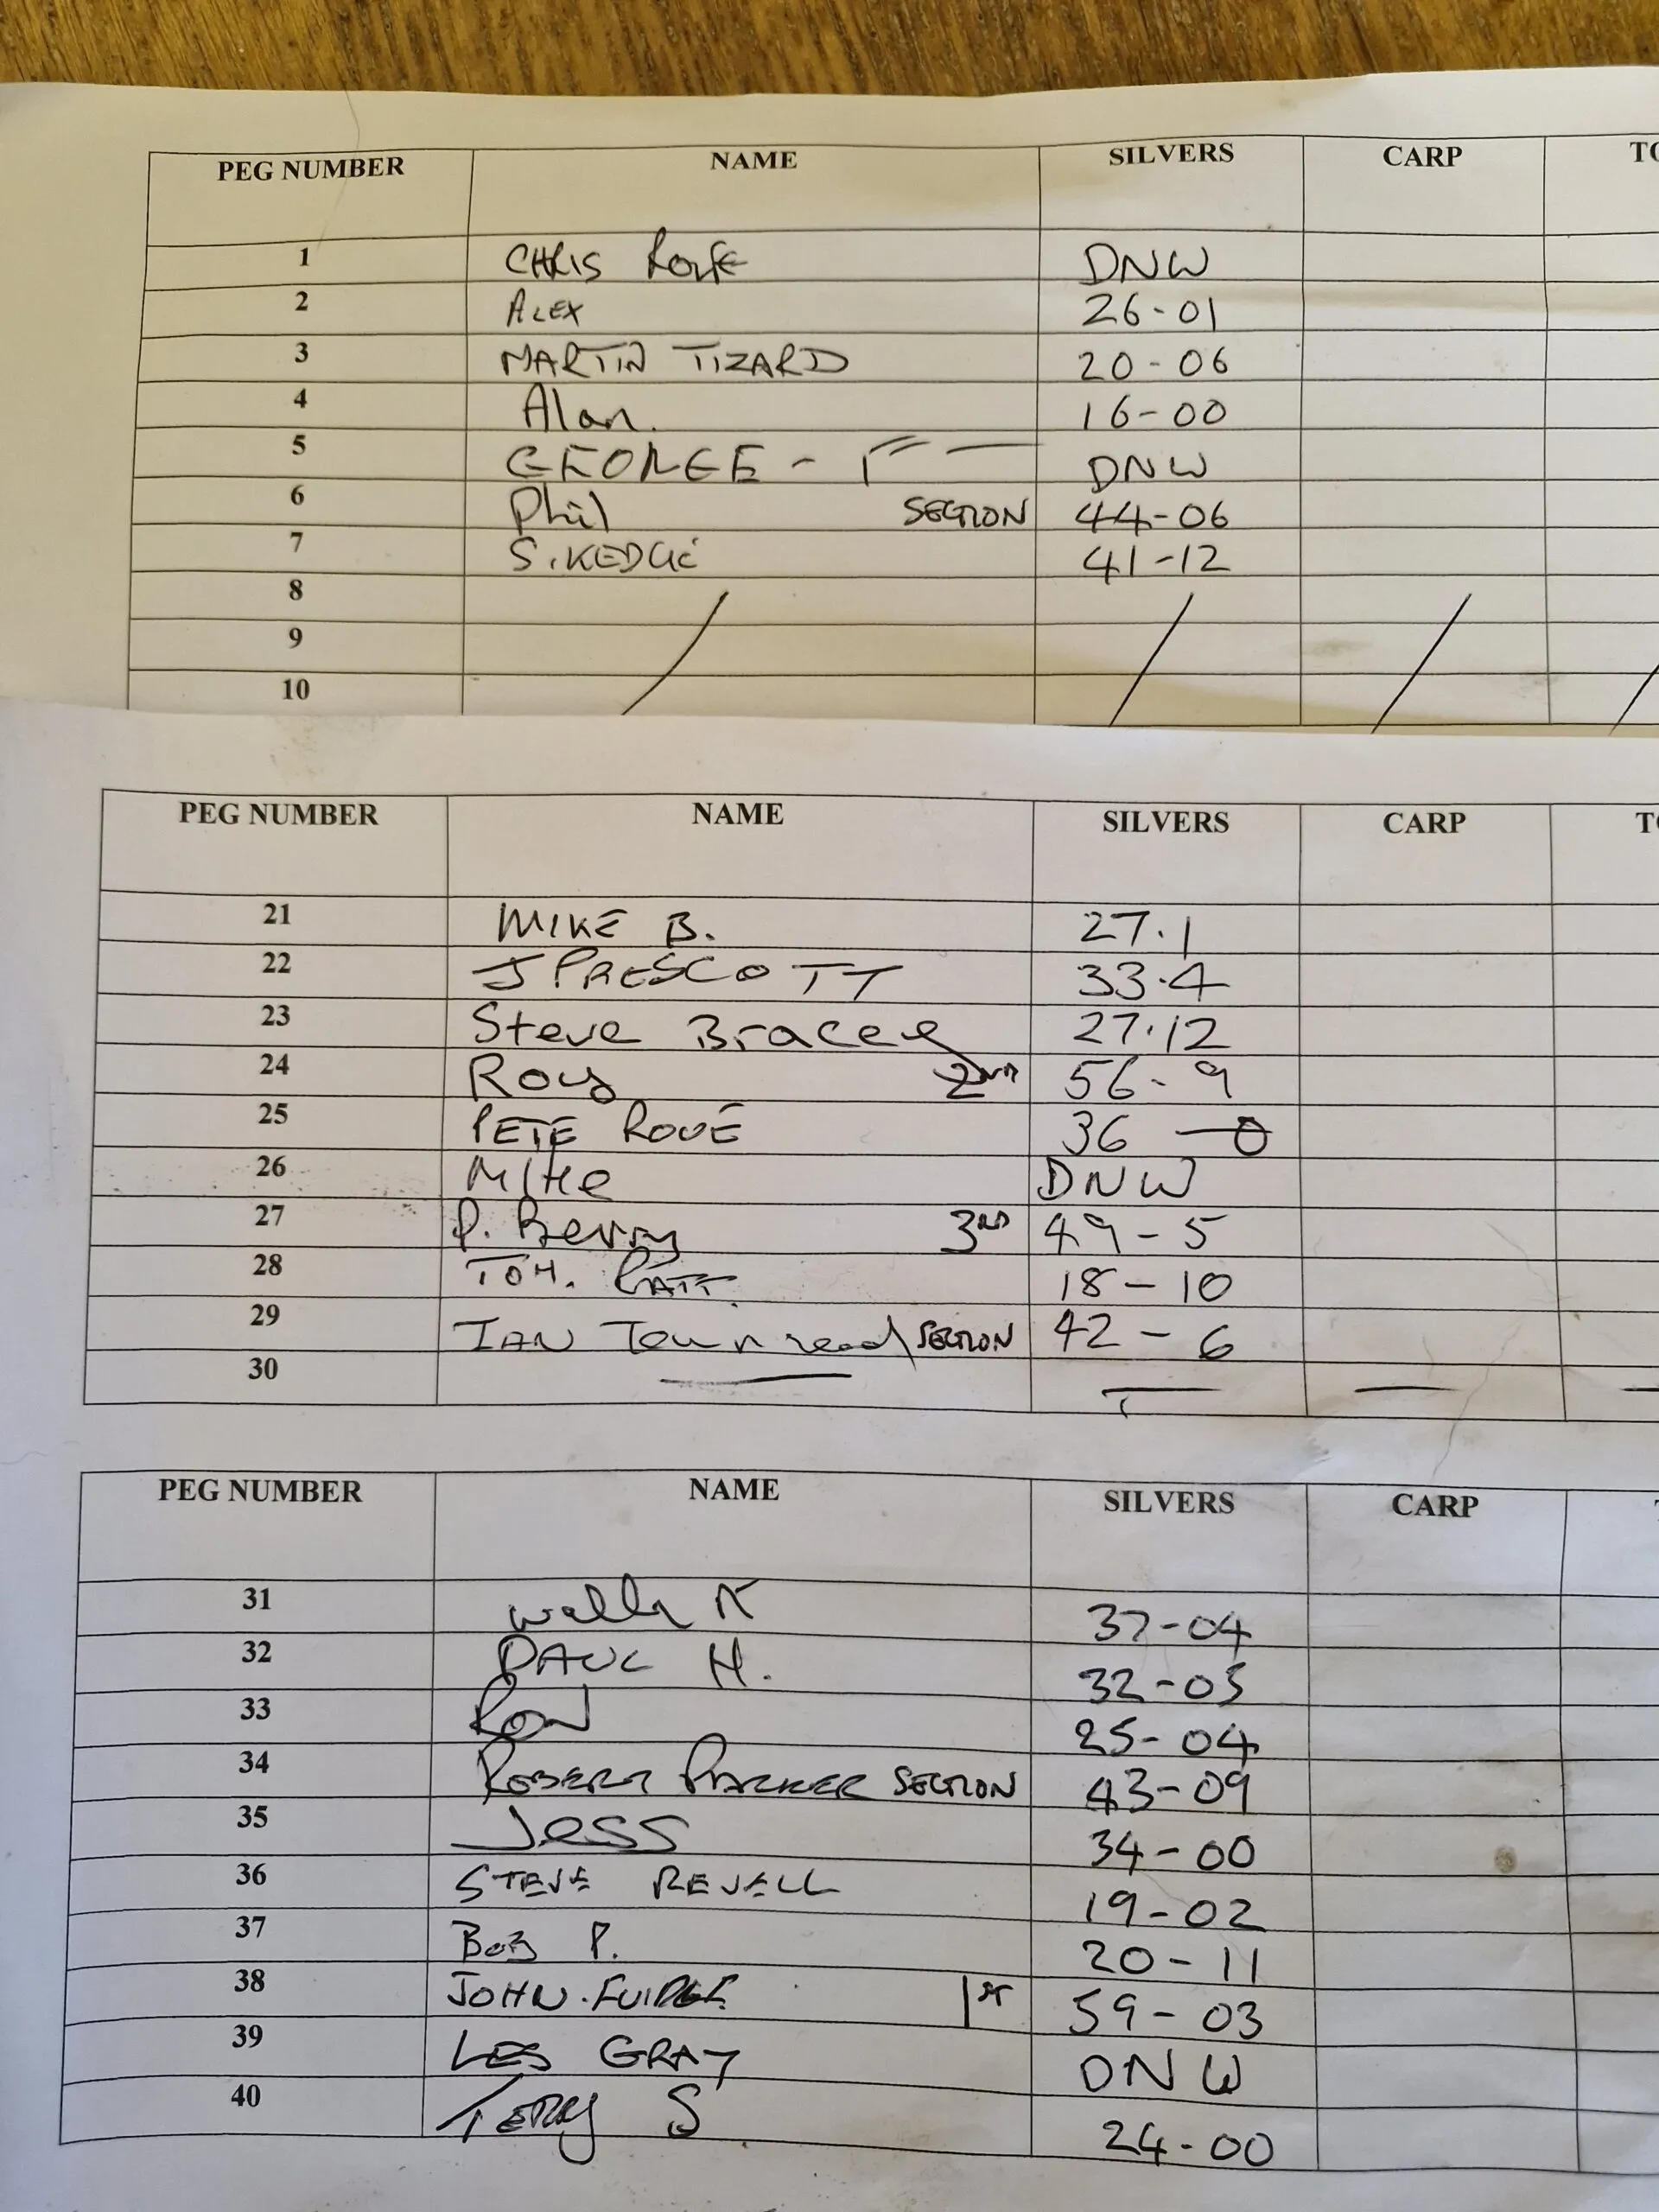 PEG NUMBER NAME SILVERS CARP TO
1 CHRIS Rolfe DNW
2 ALEX 26-01
3 MARTIN TIZARD 20-06
4 Alan. 16-00
5 GEORGE - DNW
6 Phil SECTION 44-06
7 S.KEDGE 41-12
8
9
10
PEG NUMBER NAME SILVERS CARP TO
21 MIKE B. 27.1
22 J PRESCOTT 33.4
23 Steve Bracey 27.12
24 Roy 2ND 56-9
25 PETE ROUE 36-0
26 MIKe DNW
27 P. Berry 3RD 49-5
28 TOM. 18-10
29 IAN Townsend SECTION 42-6
30
PEG NUMBER NAME SILVERS CARP
31 37-04
32 PAUL H. 32-05
33 RON 25-04
34 ROBERT PARKER SECTION 43-09
35 Jess 34-00
36 STEVE REVELL 19-02
37 BOB P. 20-11
38 JOHN. FUIDGE 1ST 59-03
39 LES GRAY DNW
40 TERRY S 24-00